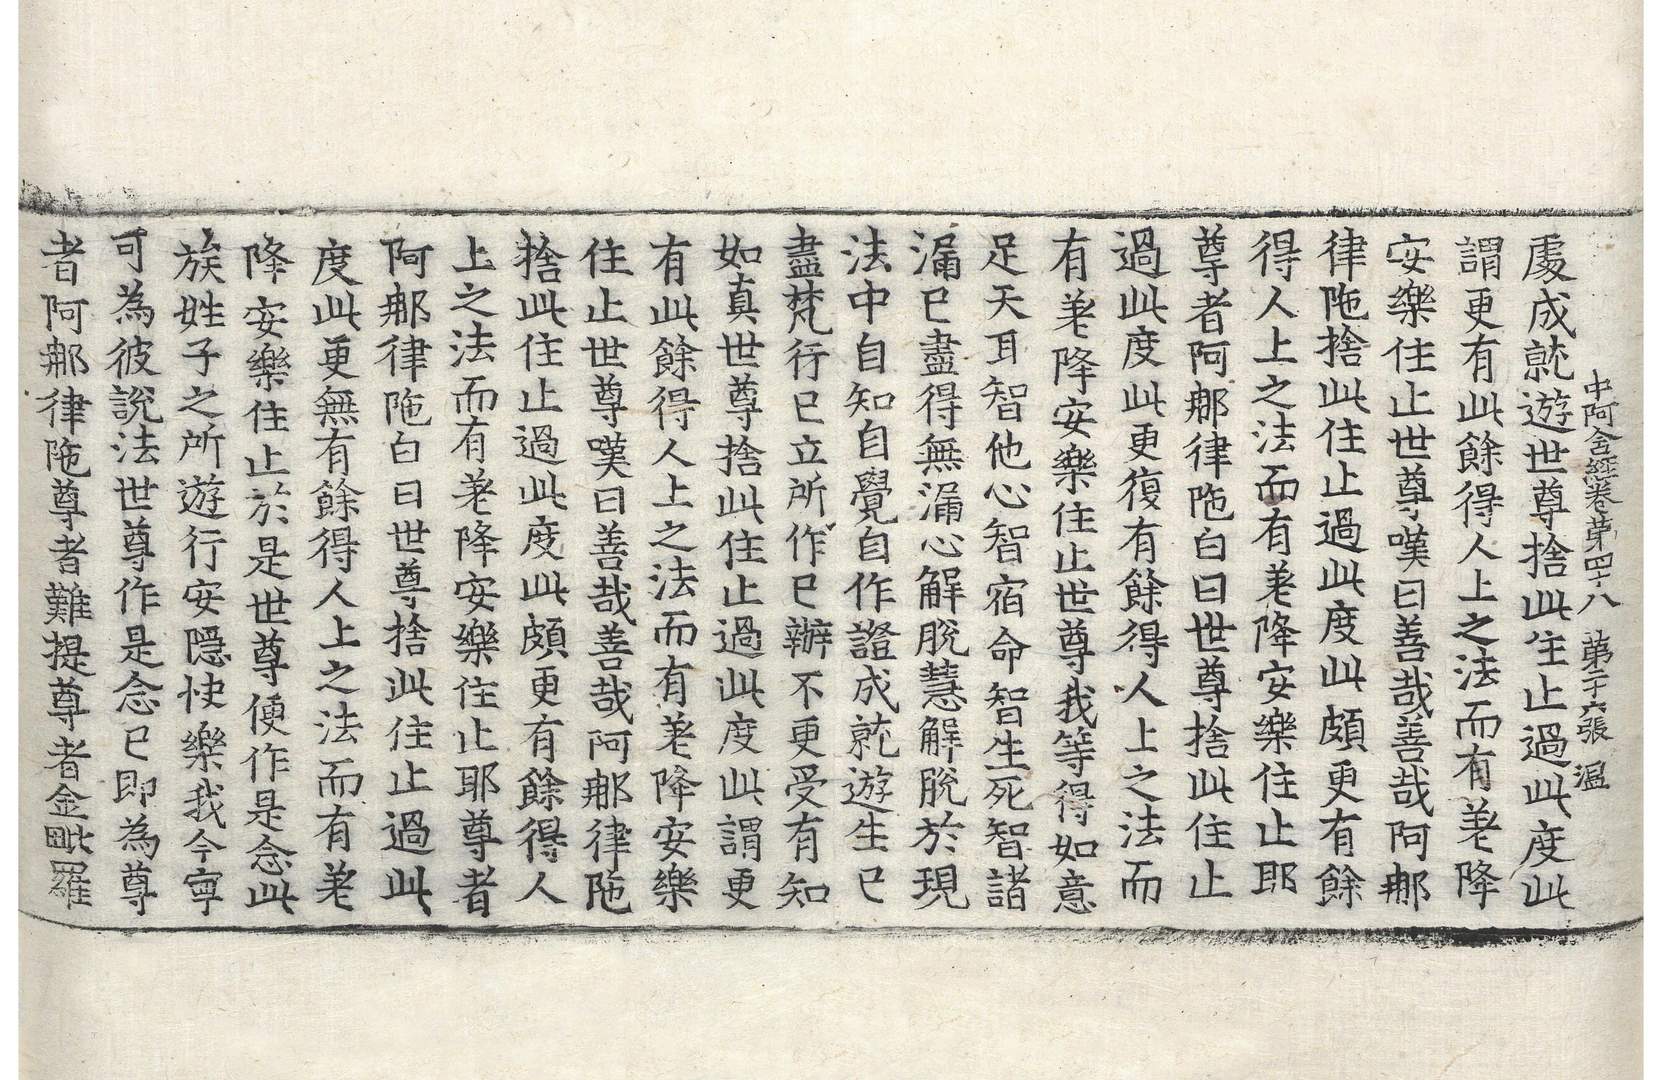 中阿含經卷第四十八　第二十六張　溫
處成就遊世尊捨此住止過此度此
謂更有此餘得人上之法而有差降
安樂住止世尊嘆曰善哉善哉阿那
律陁捨此住止過此度此頗更有餘
得人上之法而有差降安樂住止耶
尊者阿那律陁白曰世尊捨此住止
過此度此更復有餘得人上之法而
有差降安樂住止世尊我等得如意
足天耳智他心智宿命智生死智諸
漏已盡得無漏心解脫慧解脫於現
法中自知自覺自作證成就遊生已
盡梵行已立所作已辦不更受有知
如真世尊捨此住止過此度此謂更
有此餘得人上之法而有差降安樂
住止世尊嘆曰善哉善哉阿那律陁
捨此住止過此度此頗更有餘得人
上之法而有差降安樂住止耶尊者
阿那律陁白曰世尊捨此住止過此
度此更無有餘得人上之法而有差
降安樂住止於是世尊便作是念此
族姓子之所遊行安隱快樂我今寧
可為彼說法世尊作是念已即為尊
者阿那律陁尊者難提尊者金毗羅